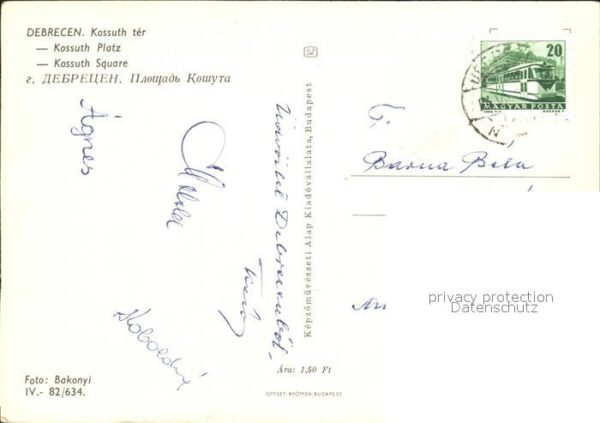 DEBRECEN. Kossuth tér
— Kossuth Platz
— Kossuth Square
г. ДЕБРЕЦЕН. Площадь Кошута
Ágnes
Üdvözlet Debrecenből
Foto: Bakonyi
IV.- 82/634.
Ára: 1,50 Ft
OFFSET-NYOMDA, BUDAPEST
Képzőművészeti Alap Kiadóvállalata, Budapest
SZ
20
MAGYAR POSTA
Barna Béla
privacy protection
Datenschutz